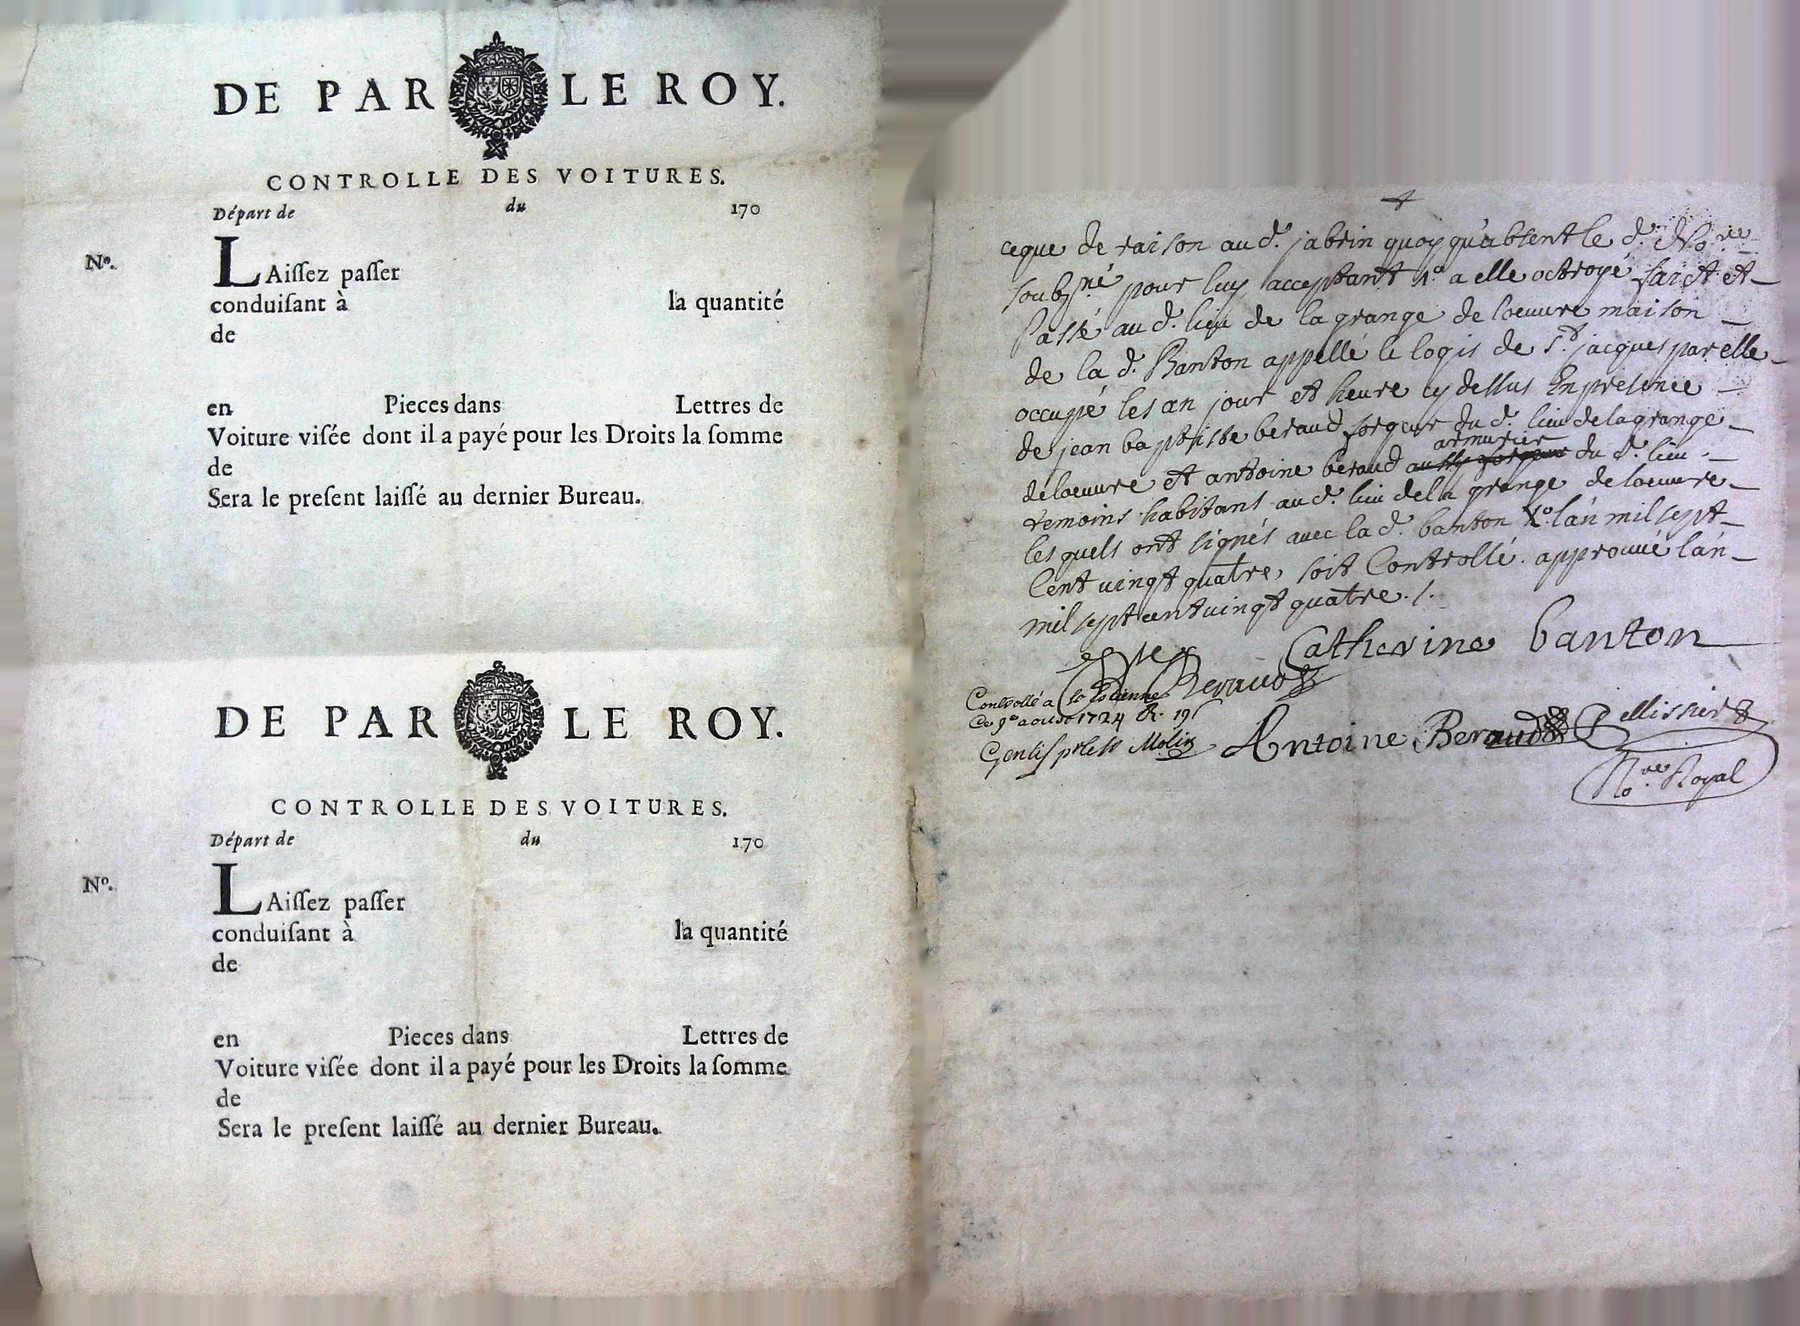 DE PAR LE ROY.
CONTROLLE DES VOITURES.
Départ de du 170
Nº.
LAiſſez paſſer
conduiſant à la quantité
de
en Pieces dans Lettres de
Voiture viſée dont il a payé pour les Droits la ſomme
de
Sera le preſent laiſſé au dernier Bureau.
DE PAR LE ROY.
CONTROLLE DES VOITURES.
Départ de du 170
Nº.
LAiſſez paſſer
conduiſant à la quantité
de
en Pieces dans Lettres de
Voiture viſée dont il a payé pour les Droits la ſomme
de
Sera le preſent laiſſé au dernier Bureau.
ceque de raison au d. jabrin quoy qu'absent le d. No.re
soubz.né pour luy acceptant a elle octroyé faict et
Passé au d. lieu de la grange de loeuvre maison
de la d. Banton appellé le logis de St. jacques par elle
occupé les an jour et heure cy dessus En presence
de jean baptiste beraud forgeur du d. lieu de la grange
de loeuvre et antoine beraud armurier du d. lieu
temoins habitans au d. lieu de la grange de loeuvre
les quels ont signés avec la d. banton lan mil sept
Cent vingt quatre, soit Controllé. approuvé lan
mil sept cent vingt quatre ./.
Catherine banton
Beraud
Controllé a St Estienne
ce 9e aoust 1724 R. 19s
Antoine Beraud
Pellissier
No.re Royal